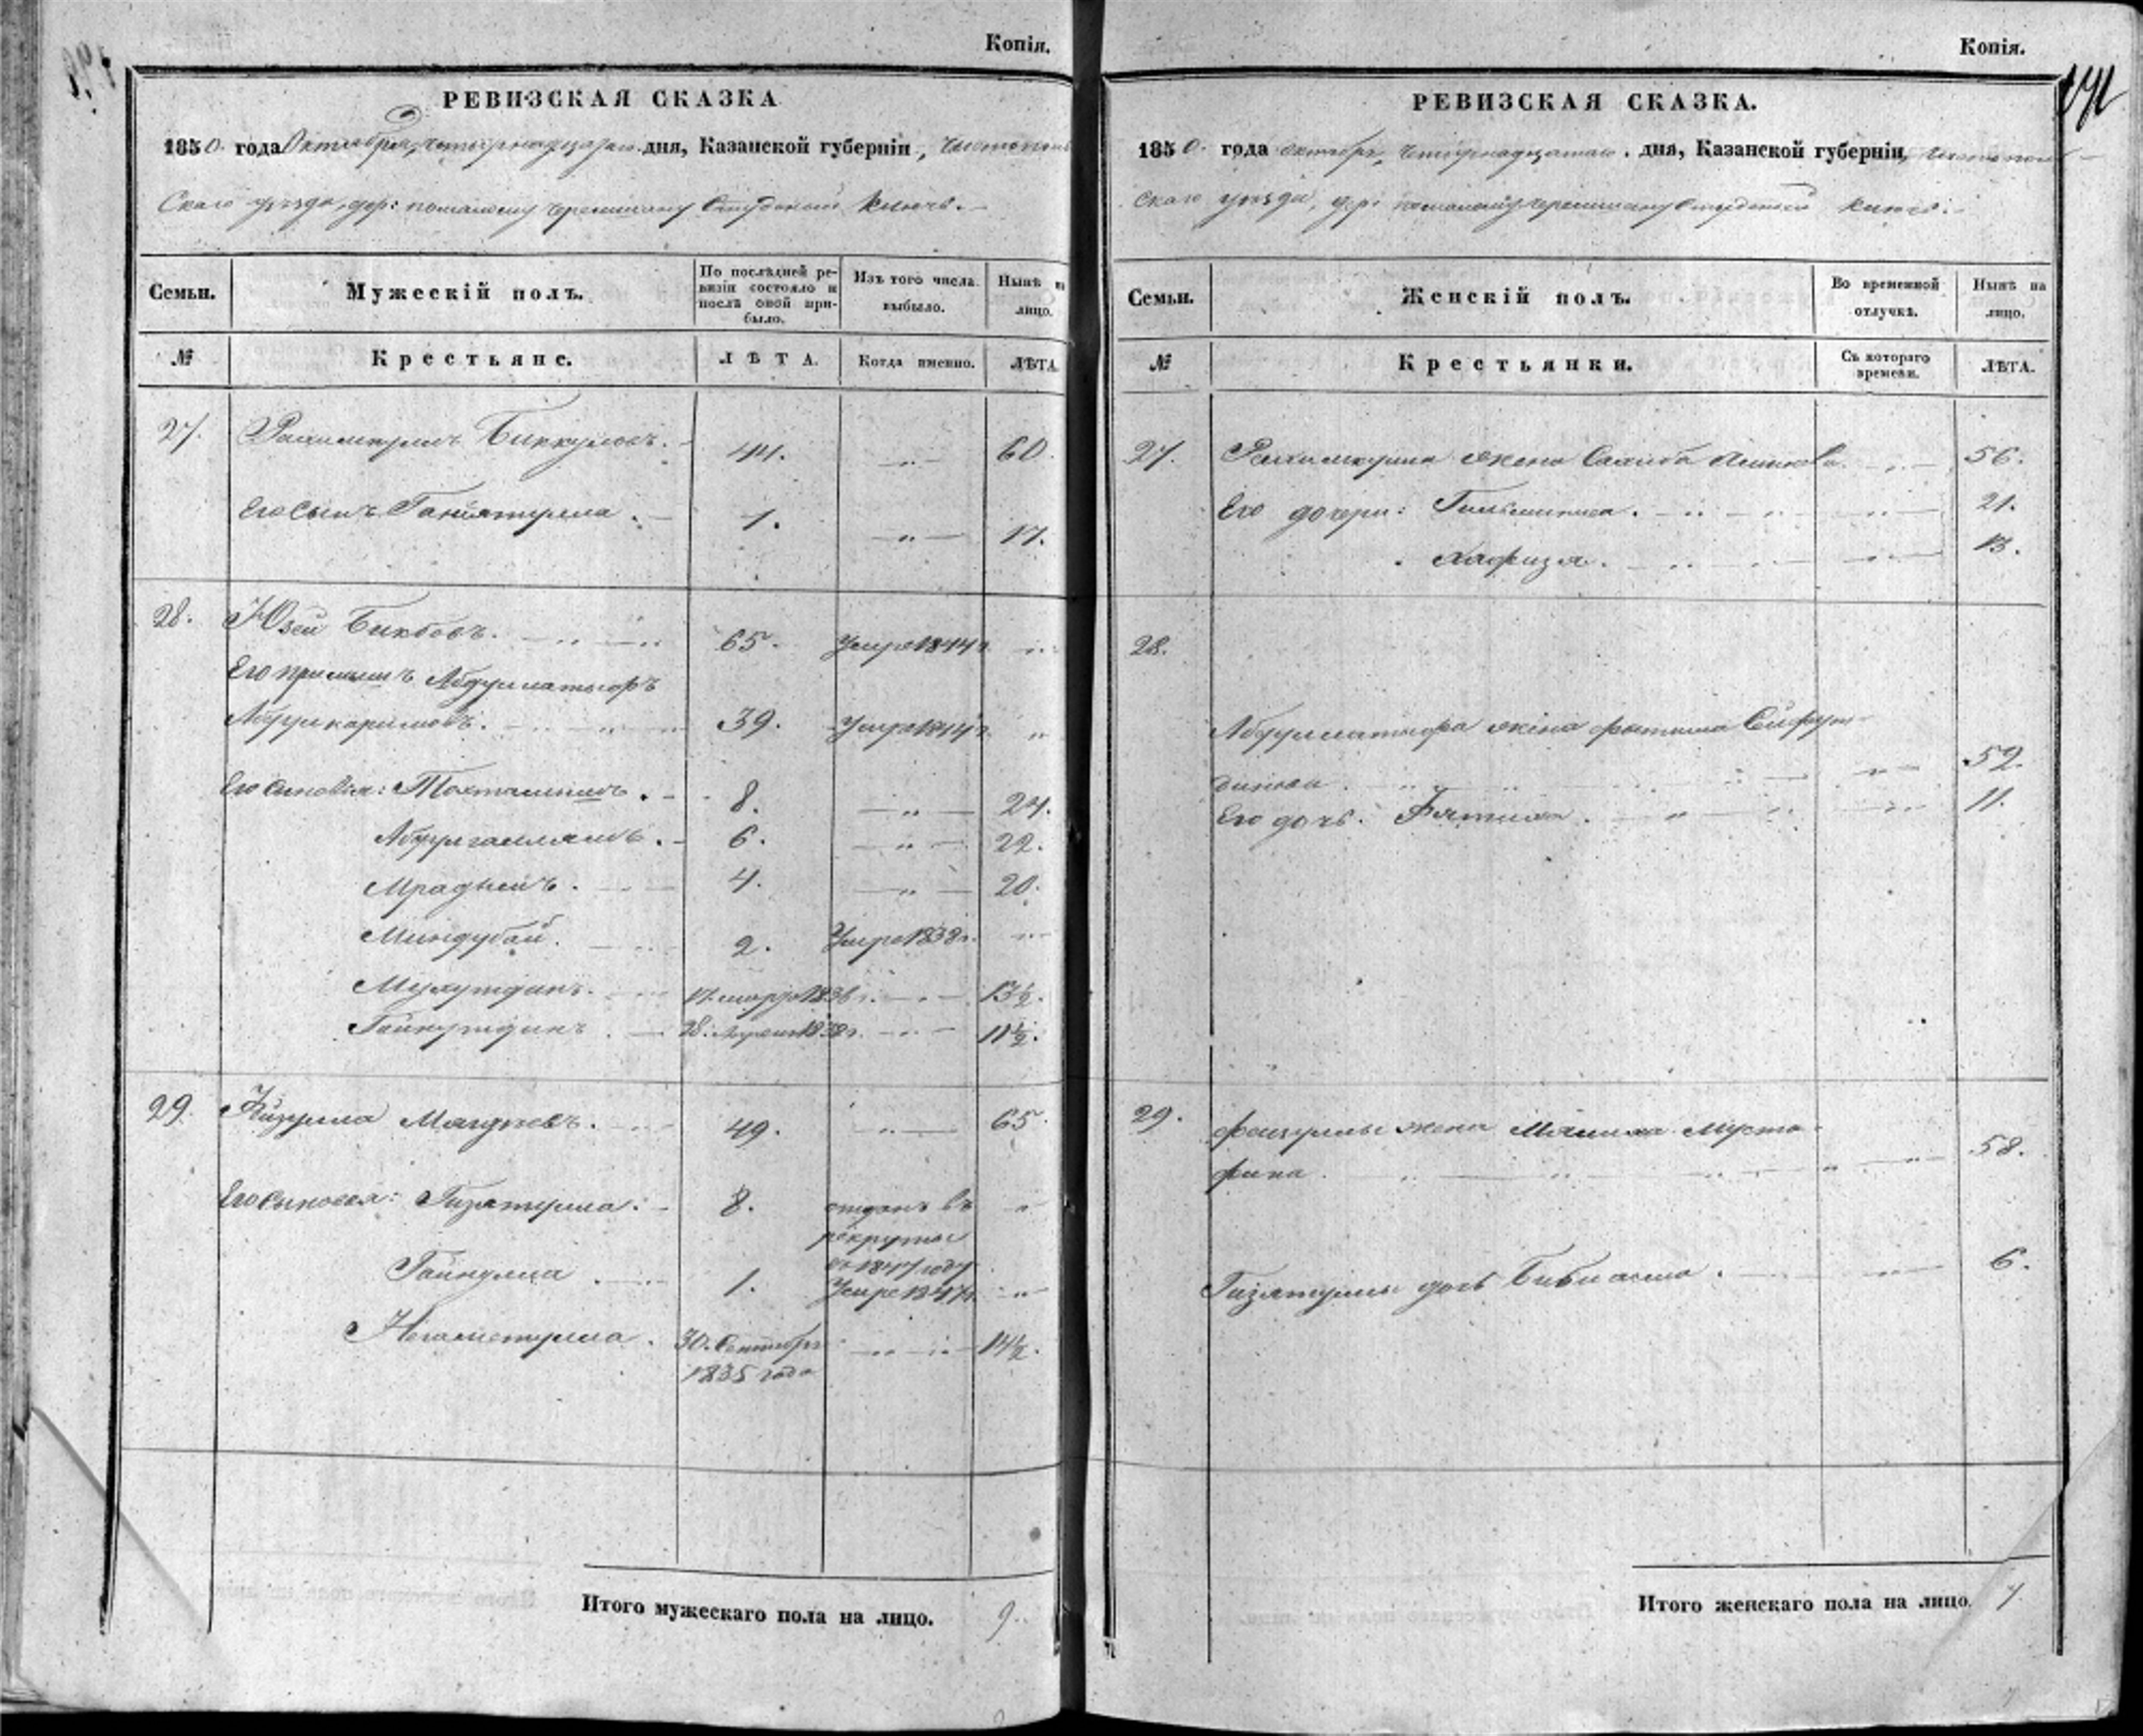 Копія.
РЕВИЗСКАЯ СКАЗКА
1850. года Октября, четырнадцатаго дня, Казанской губерніи, Чистополь
скаго уѣзда, дер: помалому Черемшану Студеный Ключь.
Семьи. Мужескій полъ. По послѣдней ре- Изъ того числа Нынѣ на
визіи состояло и выбыло. лицо.
послѣ оной при-
было.
№ Крестьяне. ЛѢТА. Когда именно. ЛѢТА.
27. Рахимкулъ Биккуловъ. 44. 60.
Его сынъ Ганіятулла. 1. 17.
28. Юзей Бикбовъ. 65. Умре 1844 г.
Его примышъ Абдуллатыфъ
Абдулкаримовъ. 39. Умре 1844 г.
Его сыновья: Тохтамышъ. 8. 24.
6. 22.
4. 20.
Миндубай. 2. Умре 1838 г.
17. марта 1836 г. 13½.
Гайнутдинъ. 28. 1838 г. 11½.
29. Файзулла 49. 65.
Его сыновья: Гизятулла: 8. отданъ въ
рекруты
въ 1847 году
Гайнулла. 1. Умре 1847 г.
Негаметулла. 30. Сентября 14½.
1835 года
Итого мужескаго пола на лицо. 9.
Копія.
РЕВИЗСКАЯ СКАЗКА.
1850. года Октября, четырнадцатаго. дня, Казанской губерніи, Чистополь
скаго уѣзда, дер: помалому Черемшану Студеный Ключь.
Семьи. Женскій полъ. Во временной Нынѣ на
отлучкѣ. лицо.
№ Крестьянки. Съ котораго ЛѢТА.
времени.
27. Рахимкула жена Сахиба 56.
Его дочери: Гильминиса. 21.
Хафиза. 13.
28.
Абдуллатыфа жена Фатыма Сайфут-
динова. 52.
Его дочь: Фатима. 11.
29. Файзуллы жена Мустa-
фина. 58.
Гизятуллы дочь Бибиасма. 6.
Итого женскаго пола на лицо. 7.